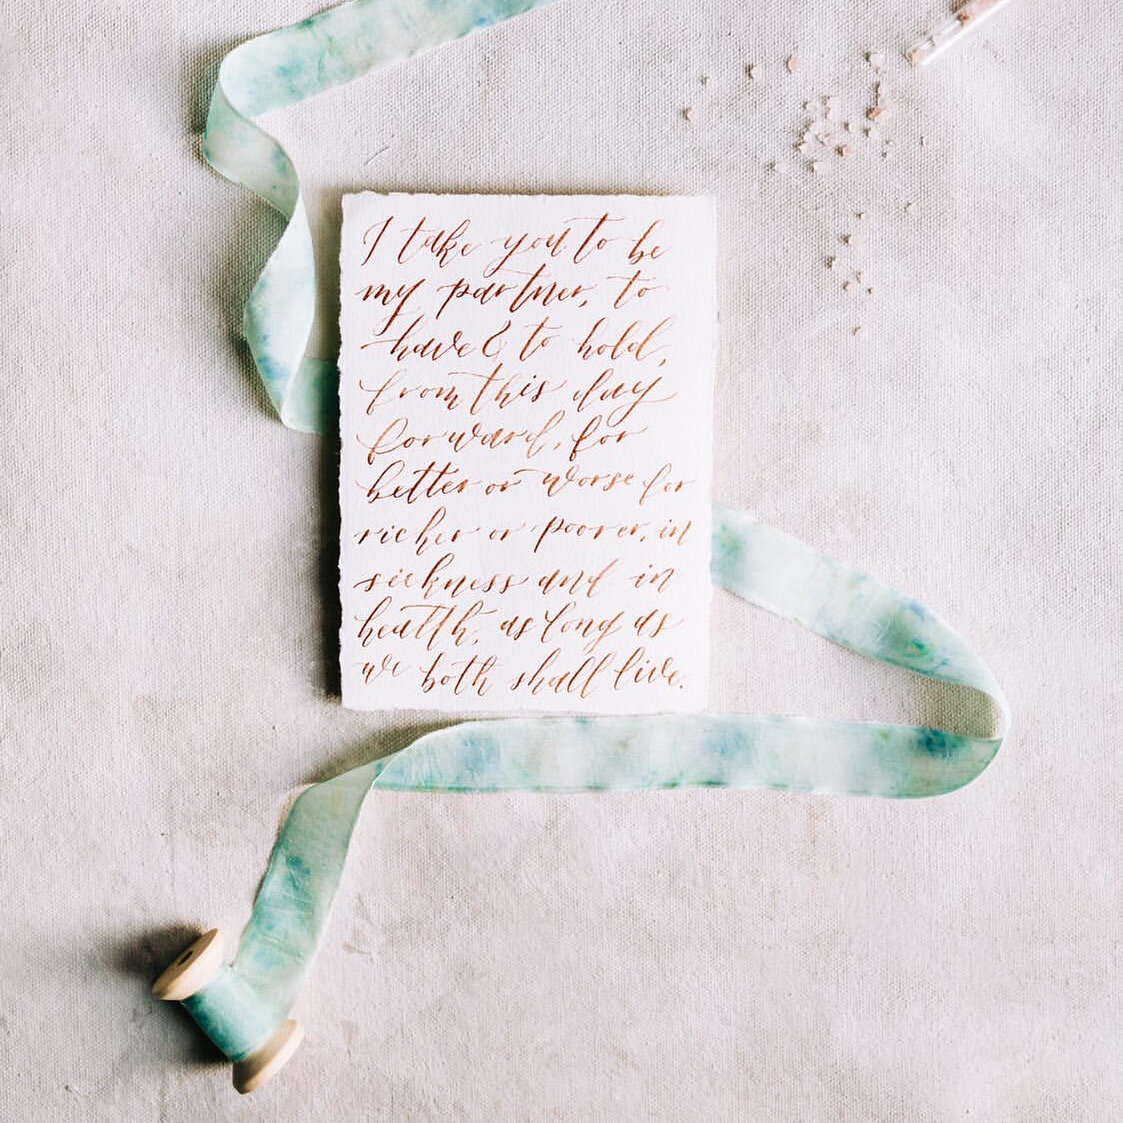 I take you to be
my partner, to
have & to hold,
from this day
forward, for
better or worse for
richer or poorer, in
sickness and in
health, as long as
we both shall live.